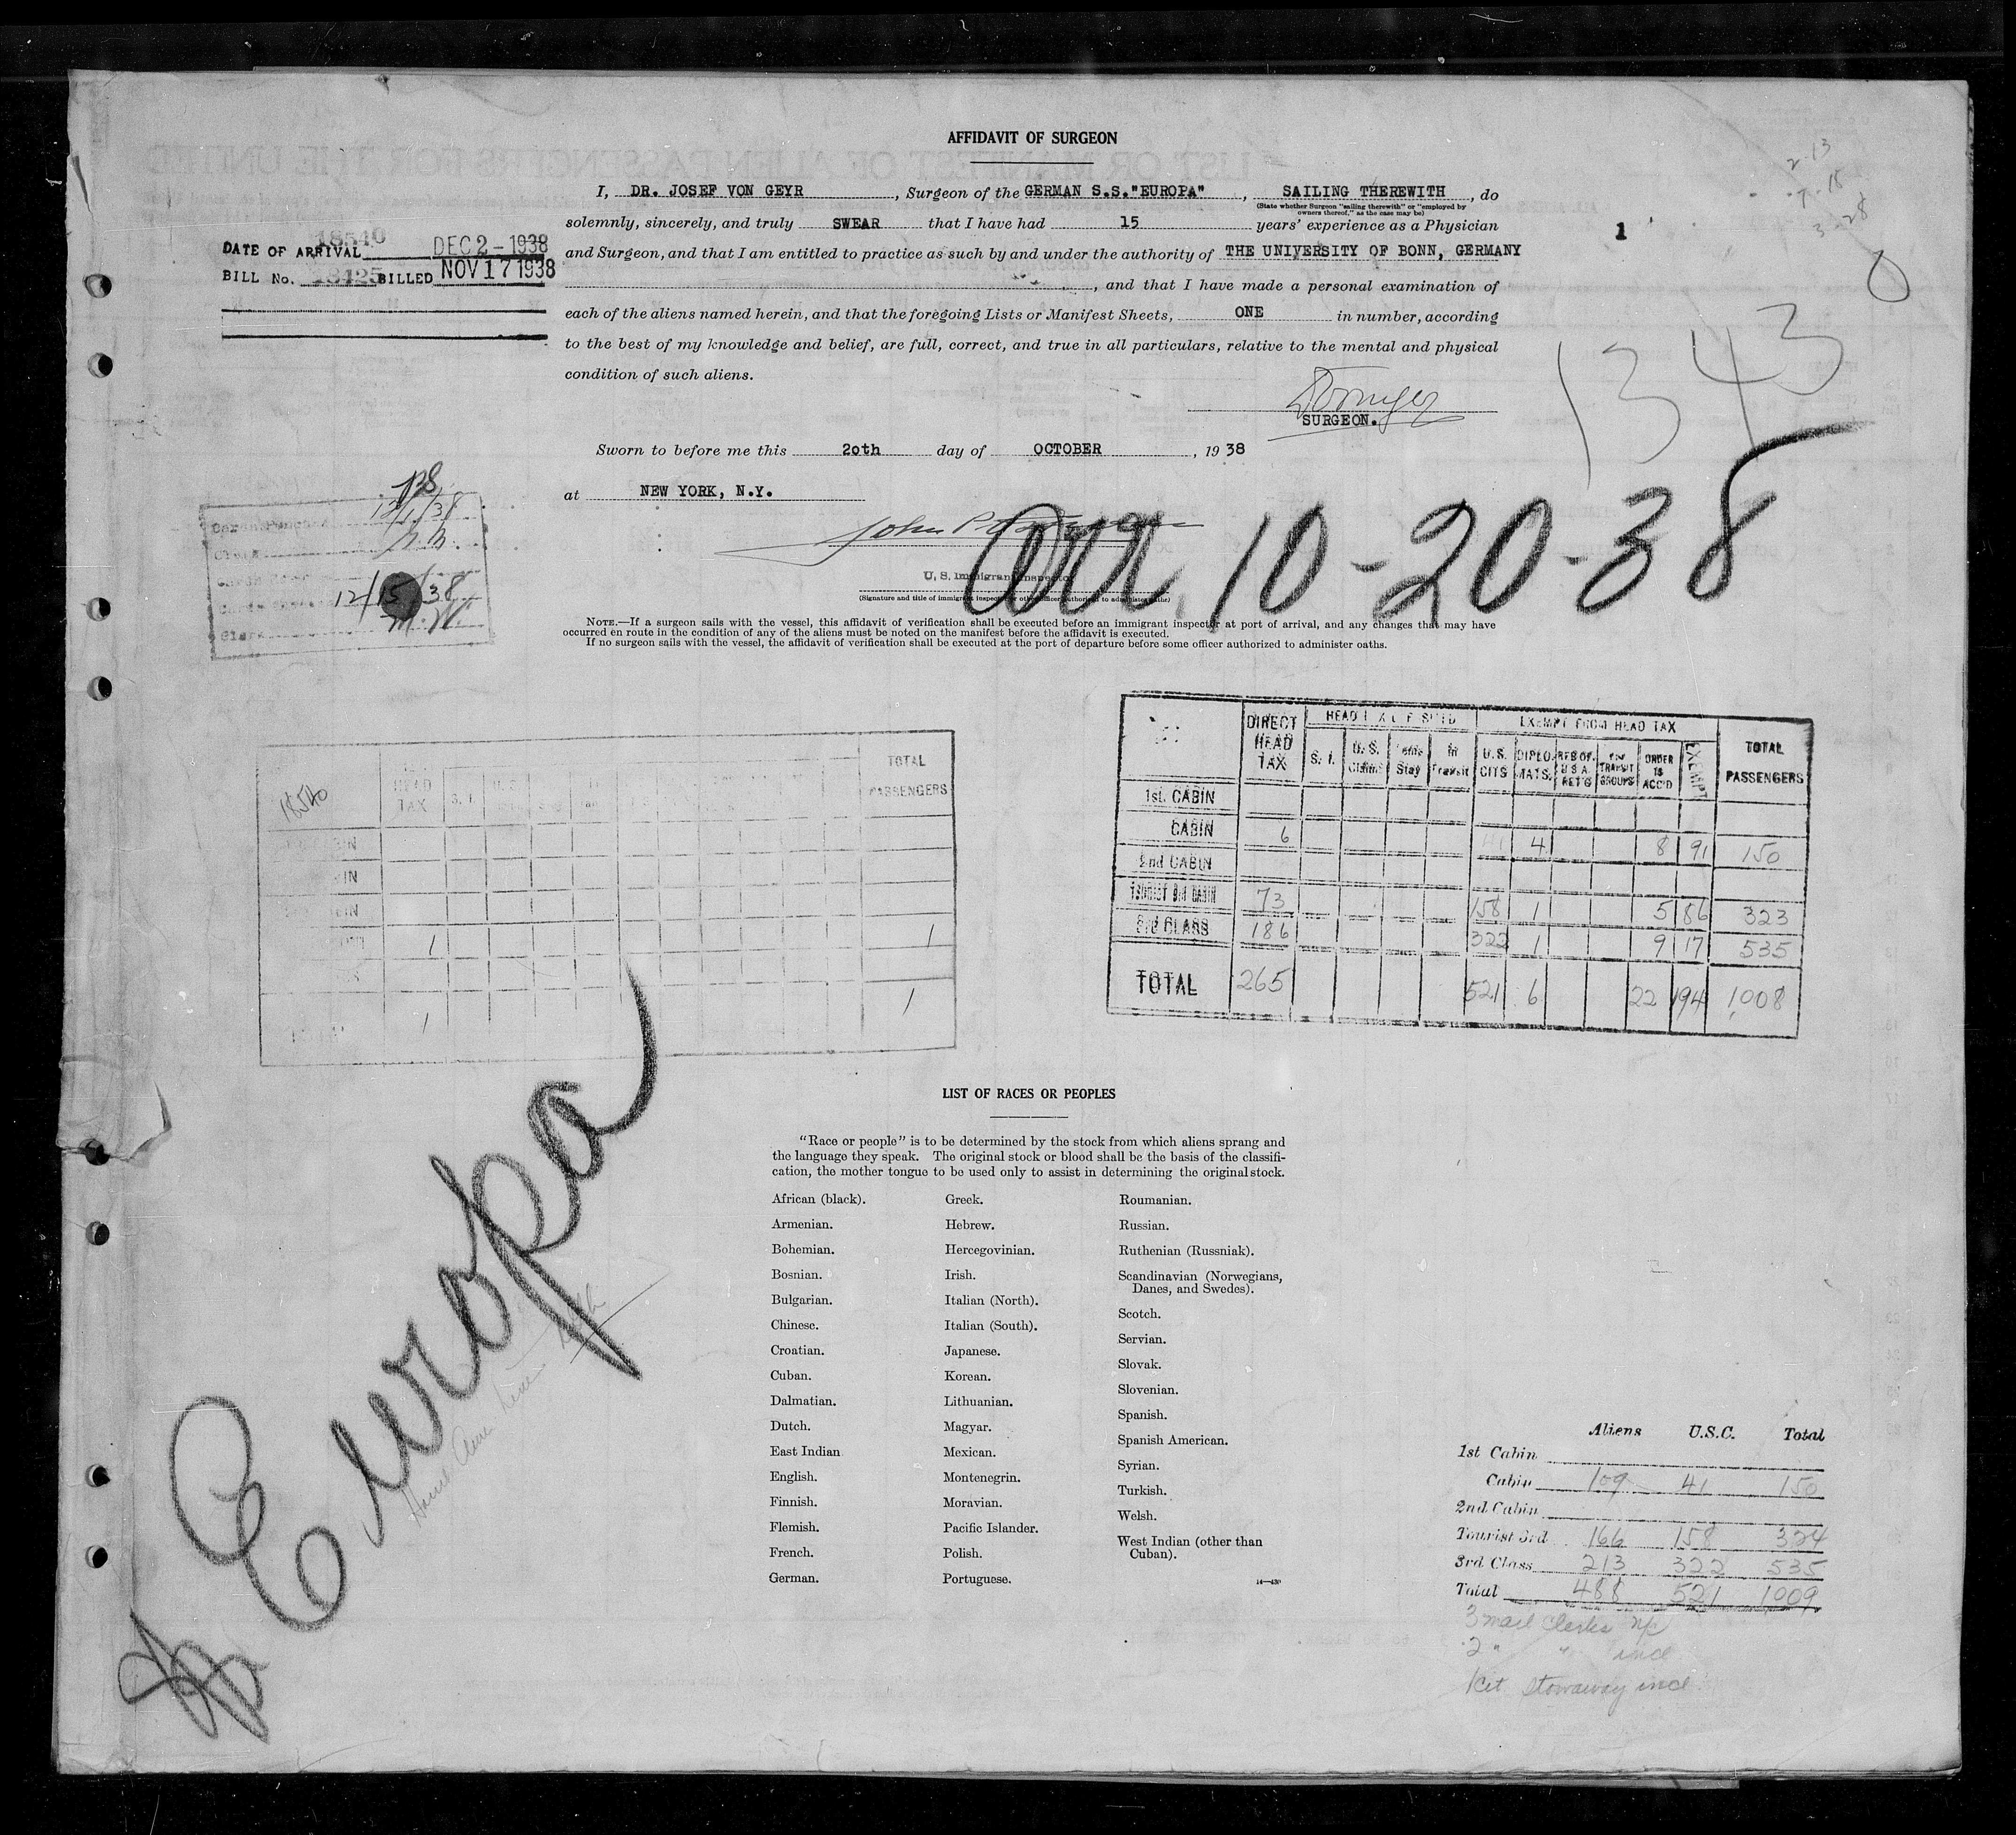 AFFIDAVIT OF SURGEON
I, DR. JOSEF VON GEYR, Surgeon of the GERMAN S.S."EUROPA", SAILING THEREWITH, do
(State whether Surgeon "sailing therewith" or "employed by
owners thereof," as the case may be)
solemnly, sincerely, and truly SWEAR that I have had 15 years' experience as a Physician
and Surgeon, and that I am entitled to practice as such by and under the authority of THE UNIVERSITY OF BONN, GERMANY
, and that I have made a personal examination of
each of the aliens named herein, and that the foregoing Lists or Manifest Sheets, ONE in number, according
to the best of my knowledge and belief, are full, correct, and true in all particulars, relative to the mental and physical
condition of such aliens.
1
2-13
7-15
3-28
0
1343
18540
DATE OF ARRIVAL DEC 2-1938
BILL No. 18425 BILLED NOV 17 1938
SURGEON.
Sworn to before me this 20th day of OCTOBER, 1938
at NEW YORK, N.Y.
John P.
U. S. Immigrant Inspector
(Signature and title of immigrant inspector or other officer authorized to administer oaths)
arr. 10-20-38
12/1/38
12/15/38
M.W.
Clerk
NOTE.—If a surgeon sails with the vessel, this affidavit of verification shall be executed before an immigrant inspector at port of arrival, and any changes that may have
occurred en route in the condition of any of the aliens must be noted on the manifest before the affidavit is executed.
If no surgeon sails with the vessel, the affidavit of verification shall be executed at the port of departure before some officer authorized to administer oaths.
18540
HEAD TAX S. I. U. S. TOTAL PASSENGERS
1 1
1 1
DIRECT HEAD TAX HEAD TAX EXEMPT FROM HEAD TAX TOTAL PASSENGERS
S. I. U. S. Claims Temp Stay In Transit U.S. CITS DIPLO- MATS. RES OF U S A RET'G TRANSIT GROUPS ORDER IS ACC'D EXEMPT
1st. CABIN
CABIN 6 41 4 8 91 150
2nd CABIN
TOURIST 3rd CABIN 73 158 1 5 86 323
3rd CLASS 186 322 1 9 17 535
TOTAL 265 521 6 22 194 1008
Europa
LIST OF RACES OR PEOPLES
"Race or people" is to be determined by the stock from which aliens sprang and
the language they speak. The original stock or blood shall be the basis of the classifi-
cation, the mother tongue to be used only to assist in determining the original stock.
African (black).
Armenian.
Bohemian.
Bosnian.
Bulgarian.
Chinese.
Croatian.
Cuban.
Dalmatian.
Dutch.
East Indian
English.
Finnish.
Flemish.
French.
German.
Greek.
Hebrew.
Hercegovinian.
Irish.
Italian (North).
Italian (South).
Japanese.
Korean.
Lithuanian.
Magyar.
Mexican.
Montenegrin.
Moravian.
Pacific Islander.
Polish.
Portuguese.
Roumanian.
Russian.
Ruthenian (Russniak).
Scandinavian (Norwegians,
Danes, and Swedes).
Scotch.
Servian.
Slovak.
Slovenian.
Spanish.
Spanish American.
Syrian.
Turkish.
Welsh.
West Indian (other than
Cuban).
Aliens U.S.C. Total
1st Cabin
Cabin 109 41 150
2nd Cabin
Tourist 3rd 166 158 324
3rd Class 213 322 535
Total 488 521 1009
3 mail Clerks n/c
2 " " incl
1 Cit. Stowaway incl.